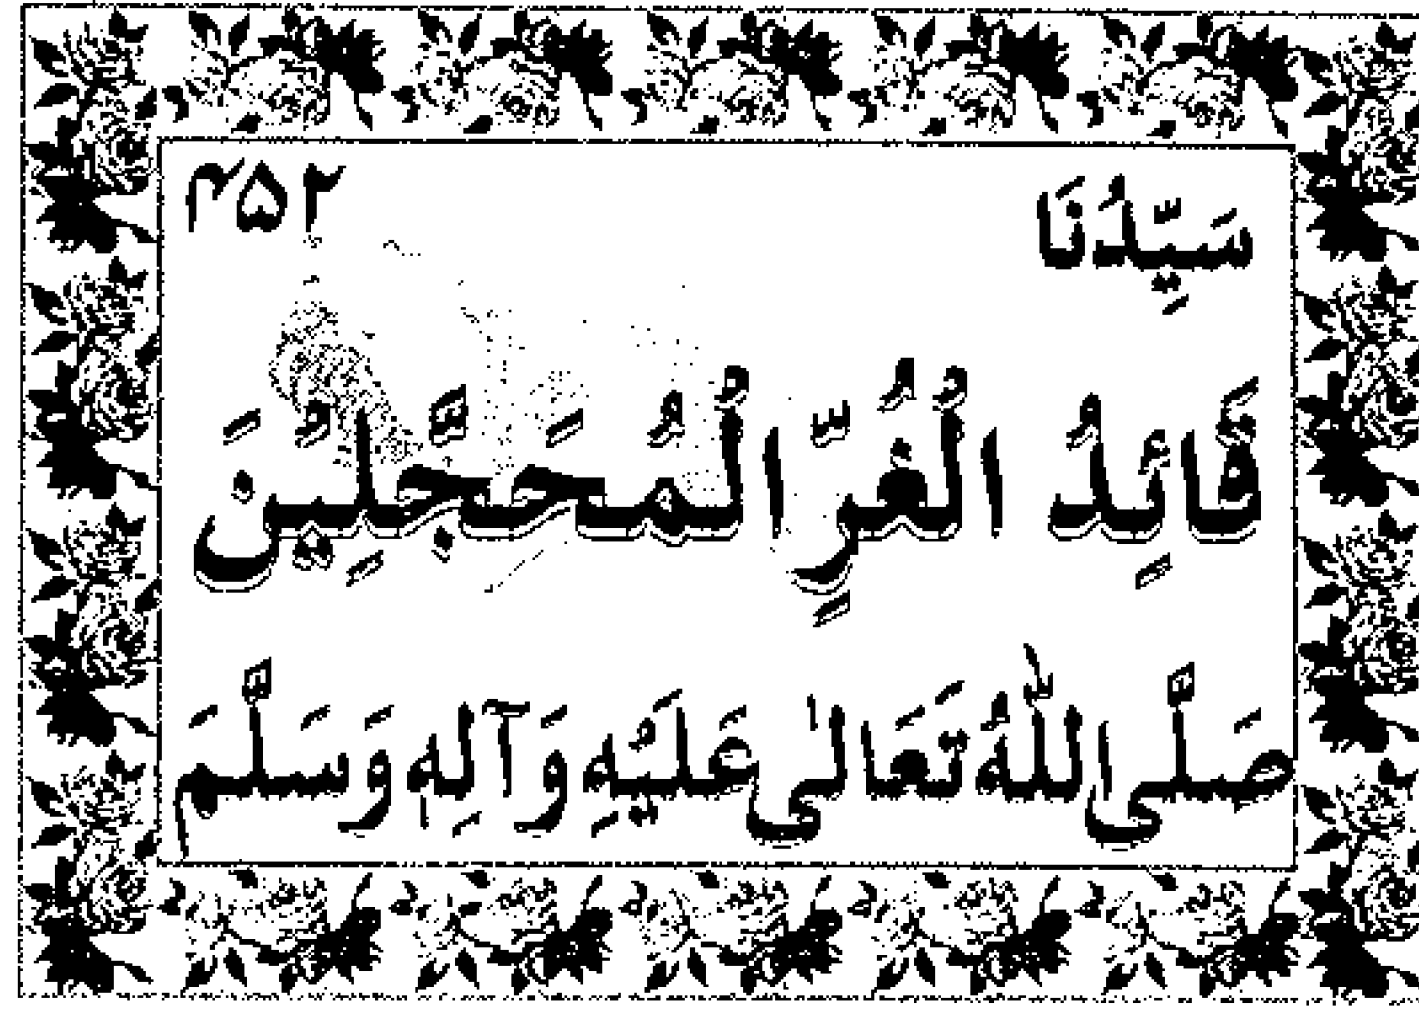 سَيِّدُنَا ۴۵۲
قَائِدُ الْغُرِّ الْمُحَجَّلِيْنَ
صَلَّى اللّٰهُ تَعَالٰى عَلَيْهِ وَآلِهٖ وَسَلَّمَ